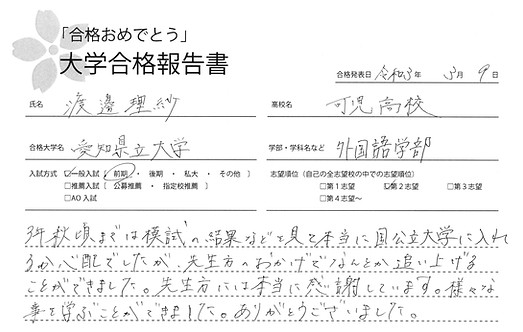 「合格おめでとう」
大学合格報告書
合格発表日 令和3年 3月 9日
氏名 渡邉理紗 高校名 可児高校
合格大学名 愛知県立大学 学部・学科名など 外国語学部
入試方式 ☑一般入試 ( 前期 ・ 後期 ・ 私大 ・ その他 ) 志望順位（自己の全志望校の中での志望順位）
□推薦入試 ( 公募推薦 ・ 指定校推薦 ) □第1志望 ☑第2志望 □第3志望
□AO入試 □第4志望〜
3年秋頃までは模試の結果などを見て本当に国公立大学に入れ
るか心配でしたが、先生方のおかげでなんとか追い上げる
ことができました。先生方には本当に感謝しています。様々な
事を学ぶことができました。ありがとうございました。